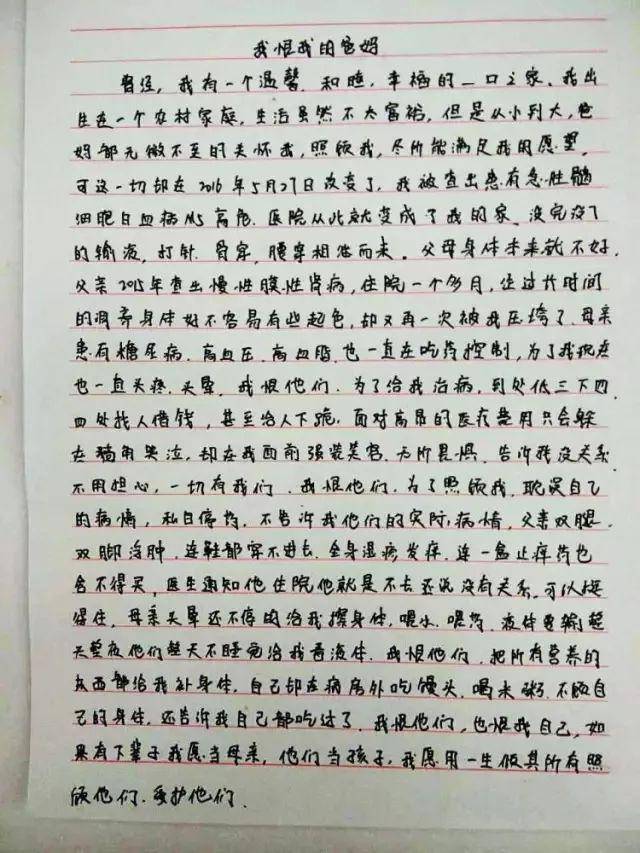 我恨我的爸妈
曾经，我有一个温馨、和睦、幸福的一口之家。我出
生在一个农村家庭，生活虽然不太富裕，但是从小到大，爸
妈都无微不至的关怀我，照顾我，尽所能满足我的愿望，
可这一切却在2016年5月27日改变了，我被查出患有急性髓
细胞白血病M5高危、医院从此就变成了我的家、没完没了
的输液，打针、骨穿，腰穿相继而来。父母身体本来就不好，
父亲2015年查出慢性膜性肾病，住院一个多月，经过长时间
的调养身体好不容易有些起色，却又再一次被我压垮了、母亲
患有糖尿病、高血压、高血脂、也一直在吃药控制，为了我现在
也一直头疼、头晕，我恨他们、为了给我治病，到处低三下四
四处找人借钱，甚至给人下跪，面对高昂的医疗费用只会躲
在墙角哭泣，却在我面前强装笑容、无所畏惧、告诉我没关系
不用担心，一切有我们、我恨他们、为了照顾我、耽误自己
的病情，私自停药，不告诉我他们的实际病情，父亲双腿
双脚浮肿，连鞋都穿不进去、全身湿疹发痒、连一盒止痒药也
舍不得买，医生通知他住院他就是不去还说没有关系，可以挺
得住，母亲头晕还不停的给我擦身体，喂水、喂药、液体要输整
天整夜他们整天不睡觉给我看液体、我恨他们、把所有营养的
东西都给我补身体，自己却在病房外吃馒头、喝米粥、不顾自
己的身体，还告诉我自己都吃过了、我恨他们，也恨我自己，如
果有下辈子我愿当母亲，他们当孩子，我愿用一生做其所有照
顾他们、爱护他们、